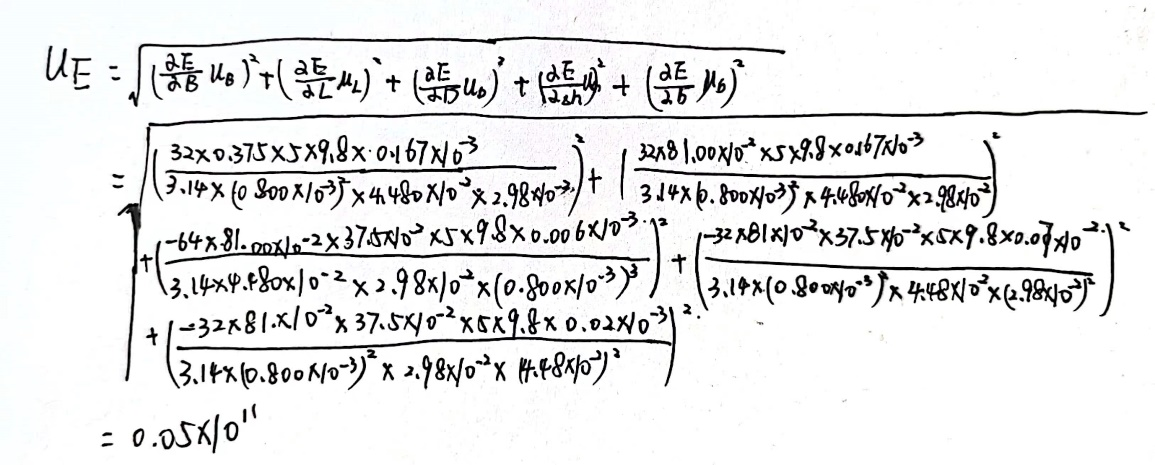 U_E = √((∂E/∂B U_B)² + (∂E/∂L μ_L)² + (∂E/∂D U_D)² + (∂E/∂Δh U)² + (∂E/∂b μ_b)²)
= √((32×0.375×5×9.8×0.167×10⁻³ / 3.14×(0.800×10⁻³)²×4.480×10⁻²×2.98×10⁻²)² + (32×81.00×10⁻²×5×9.8×0.167×10⁻³ / 3.14×(0.800×10⁻³)²×4.480×10⁻²×2.98×10⁻²)²
+ (-64×81.00×10⁻²×37.5×10⁻²×5×9.8×0.006×10⁻³ / 3.14×4.480×10⁻²×2.98×10⁻²×(0.800×10⁻³)³)² + (-32×81×10⁻²×37.5×10⁻²×5×9.8×0.07×10⁻² / 3.14×(0.800×10⁻³)²×4.48×10⁻²×(2.98×10⁻²)²)²
+ (-32×81.×10⁻²×37.5×10⁻²×5×9.8×0.02×10⁻³ / 3.14×(0.800×10⁻³)²×2.98×10⁻²×(4.48×10⁻²)²)²
= 0.05×10¹¹